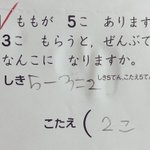 ももが 5こ あります
3こ もらうと、ぜんぶで
なんこに なりますか。
しき 5-3=2
しき5てん、こたえ5てん
こたえ ( 2こ